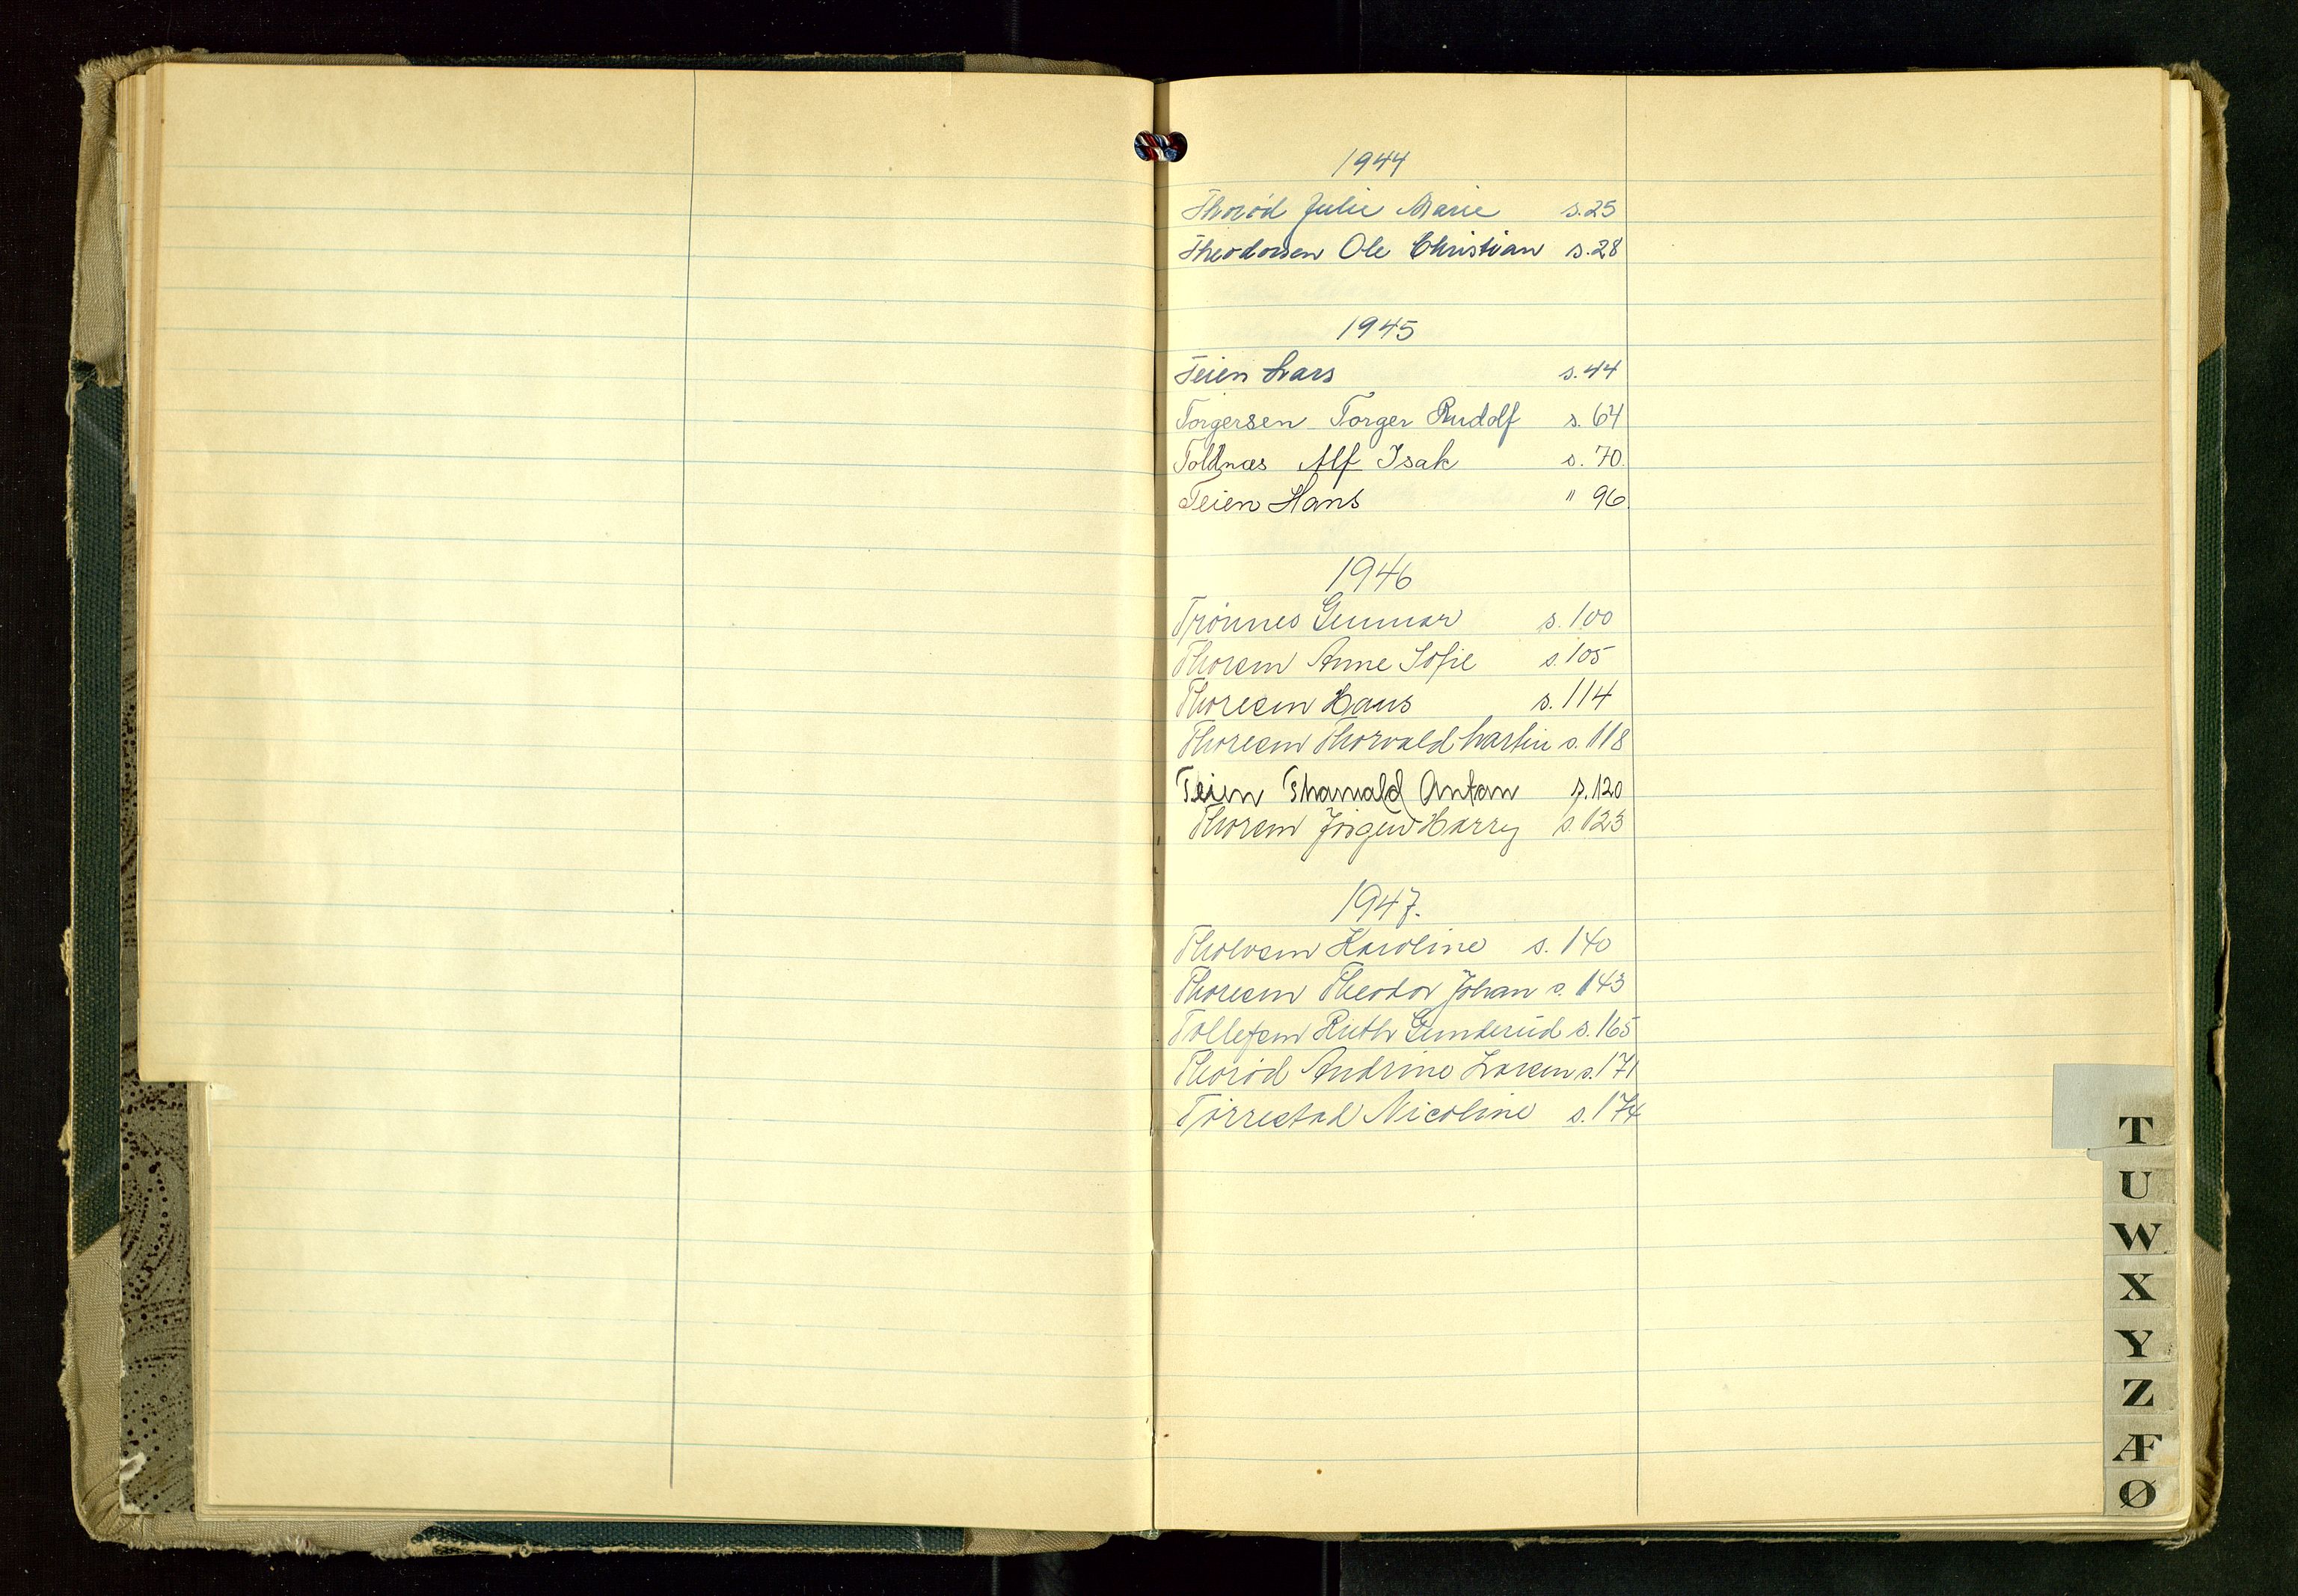 1944
Thorød Julie Marie s.25
Theodorsen Ole Christian s.28
1945
Teien Lars s.44
Torgersen Torger Rudolf s. 64
Toldnæs Alf Isak s. 70.
Teien Hans " 96.
1946
Trønnes Gunnar s. 100
Thorsen Anne Sofie s. 105
Thoresen Hans s. 114
Thoresen Thorvald Martin s. 118
Teien Thorvald Anton s. 120
Thorsen Jørgen Harry s. 123
1947.
Karoline s. 140
Thoresen Theodor Johan s. 143
Tollefsen Ruth Gunderud s. 165
Thorød Andrine Larsen s. 171
Tørrestad Nicoline s. 174
T
U
W
X
Y
Z
Æ
Ø